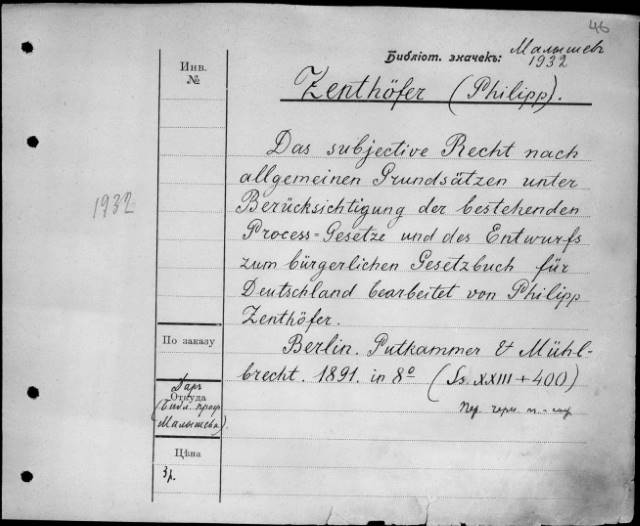 46
Инв.
№
Библіот. значекъ: Малышевъ
1932
Zenthöfer (Philipp).
Das subjective Recht nach
allgemeinen Grundsätzen unter
Berücksichtigung der bestehenden
Process-Gesetze und des Entwurfs
zum bürgerlichen Gesetzbuch für
Deutschland bearbeitet von Philipp
Zenthöfer.
Berlin. Puttkammer & Mühl-
brecht. 1891. in 8º (Ss. XXIII + 400)
1932
По заказу
Даръ
Откуда
(Библ. проф.
Малышева).
Цѣна
3р.